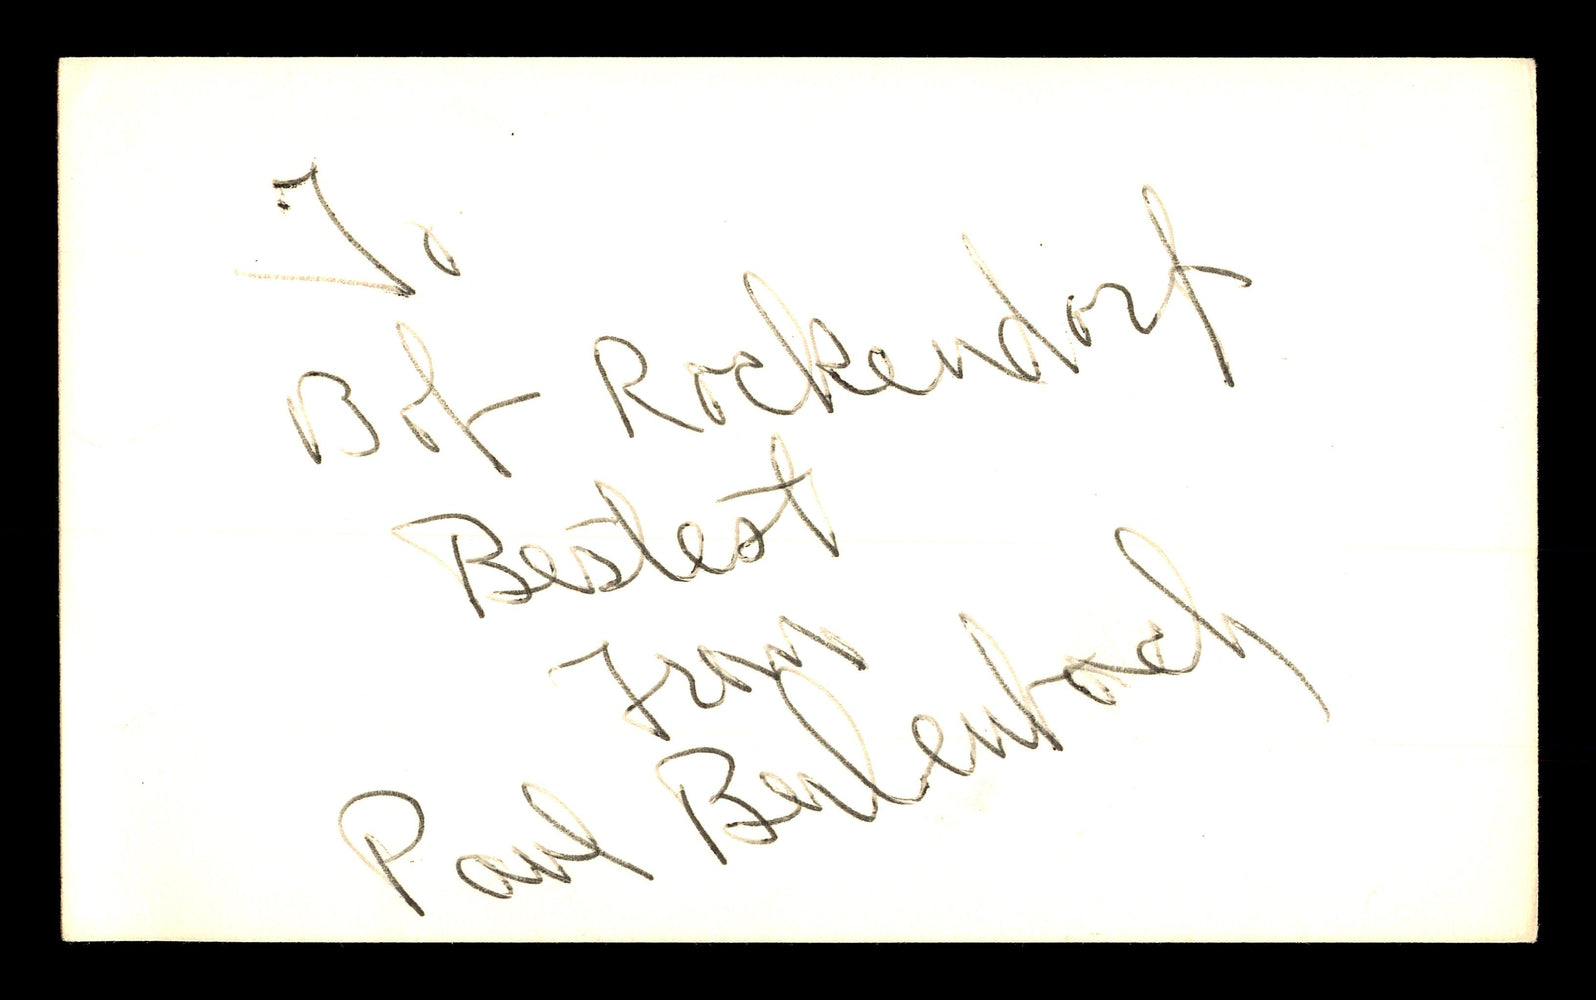 To
Bob Rockendorf
Bestest
From
Paul Berlenbach